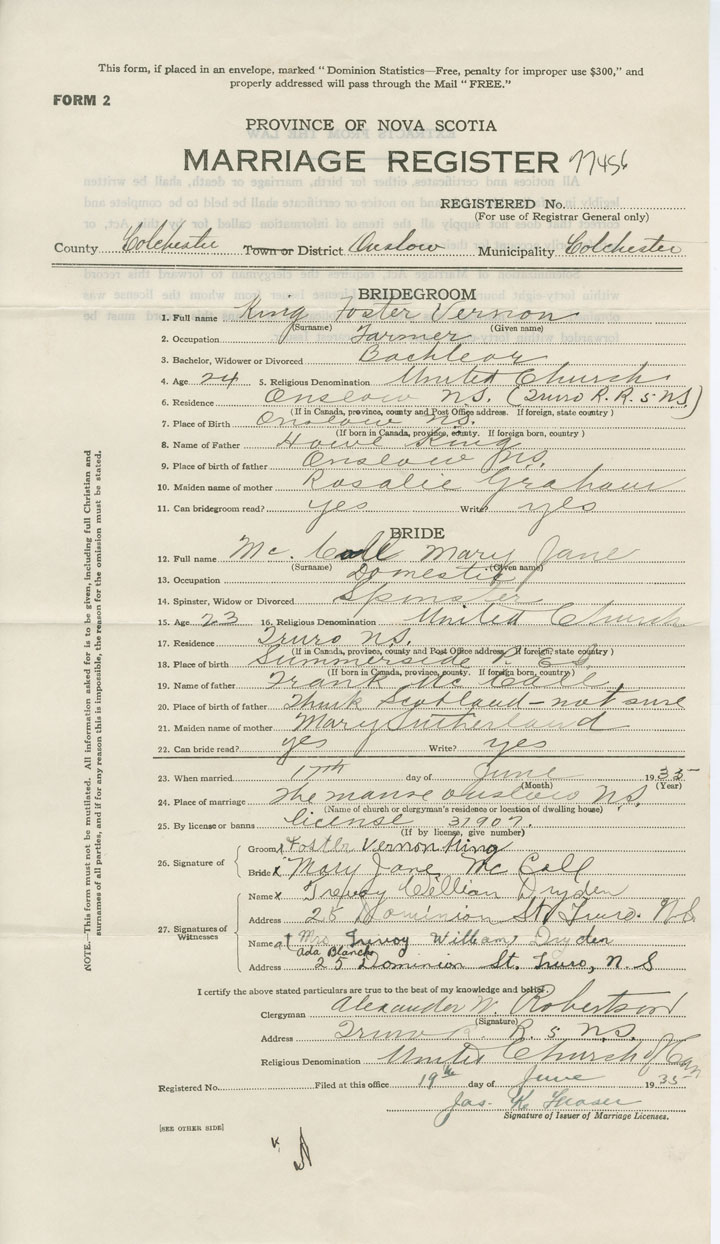 This form, if placed in an envelope, marked “ Dominion Statistics—Free, penalty for improper use $300,” and
properly addressed will pass through the Mail “ FREE.”
FORM 2
PROVINCE OF NOVA SCOTIA
MARRIAGE REGISTER 77456
REGISTERED No.
(For use of Registrar General only)
County Colchester Town or District Onslow Municipality Colchester
BRIDEGROOM
1. Full name King Foster Vernon
(Surname) (Given name)
2. Occupation Farmer
3. Bachelor, Widower or Divorced Bachleor
4. Age 24 5. Religious Denomination United Church
6. Residence Onslow N.S. (Truro R.R. 5 N.S.)
(If in Canada, province, county and Post Office address. If foreign, state country )
7. Place of Birth Onslow N.S.
(If born in Canada, province, county. If foreign born, country )
8. Name of Father Howe King
9. Place of birth of father Onslow N.S.
10. Maiden name of mother Rosalie Graham
11. Can bridegroom read? yes Write? yes
BRIDE
12. Full name Mc. Call Mary Jane
(Surname) (Given name)
13. Occupation Domestic
14. Spinster, Widow or Divorced Spinster
15. Age 23 16. Religious Denomination United Church
17. Residence Truro N.S.
(If in Canada, province, county and Post Office address. If foreign, state country )
18. Place of birth Summerside P.E.I.
(If born in Canada, province, county. If foreign born, country)
19. Name of father Frank Mc Call
20. Place of birth of father Think Scotland - not sure
21. Maiden name of mother Mary Sutherland
22. Can bride read? yes Write? yes
23. When married 17th day of June 1935
(Month) (Year)
24. Place of marriage The manse Onslow N.S.
(Name of church or clergyman's residence or location of dwelling house)
25. By license or banns license 31907.
(If by license, give number)
26. Signature of
Groom Foster Vernon King
Bride x Mary Jane Mc Call
27. Signatures of Witnesses
Name x Trevoy William Dryden
Address 25 Dominion St. Truro. N.S
Name Mrs Trevoy William Dryden
Ada Blanche
Address 25 Dominion St. Truro, N.S
I certify the above stated particulars are true to the best of my knowledge and belief.
Clergyman Alexander W. Robertson
(Signature)
Address Truro R. R. 5 N.S.
Religious Denomination United Church of Can
Registered No. Filed at this office 19th day of June 1935
Jas. K. Fraser
Signature of Issuer of Marriage Licenses.
[SEE OTHER SIDE]
NOTE.—This form must not be mutilated. All information asked for is to be given, including full Christian and
surnames of all parties, and if for any reason this is impossible, the reason for the omission must be stated.